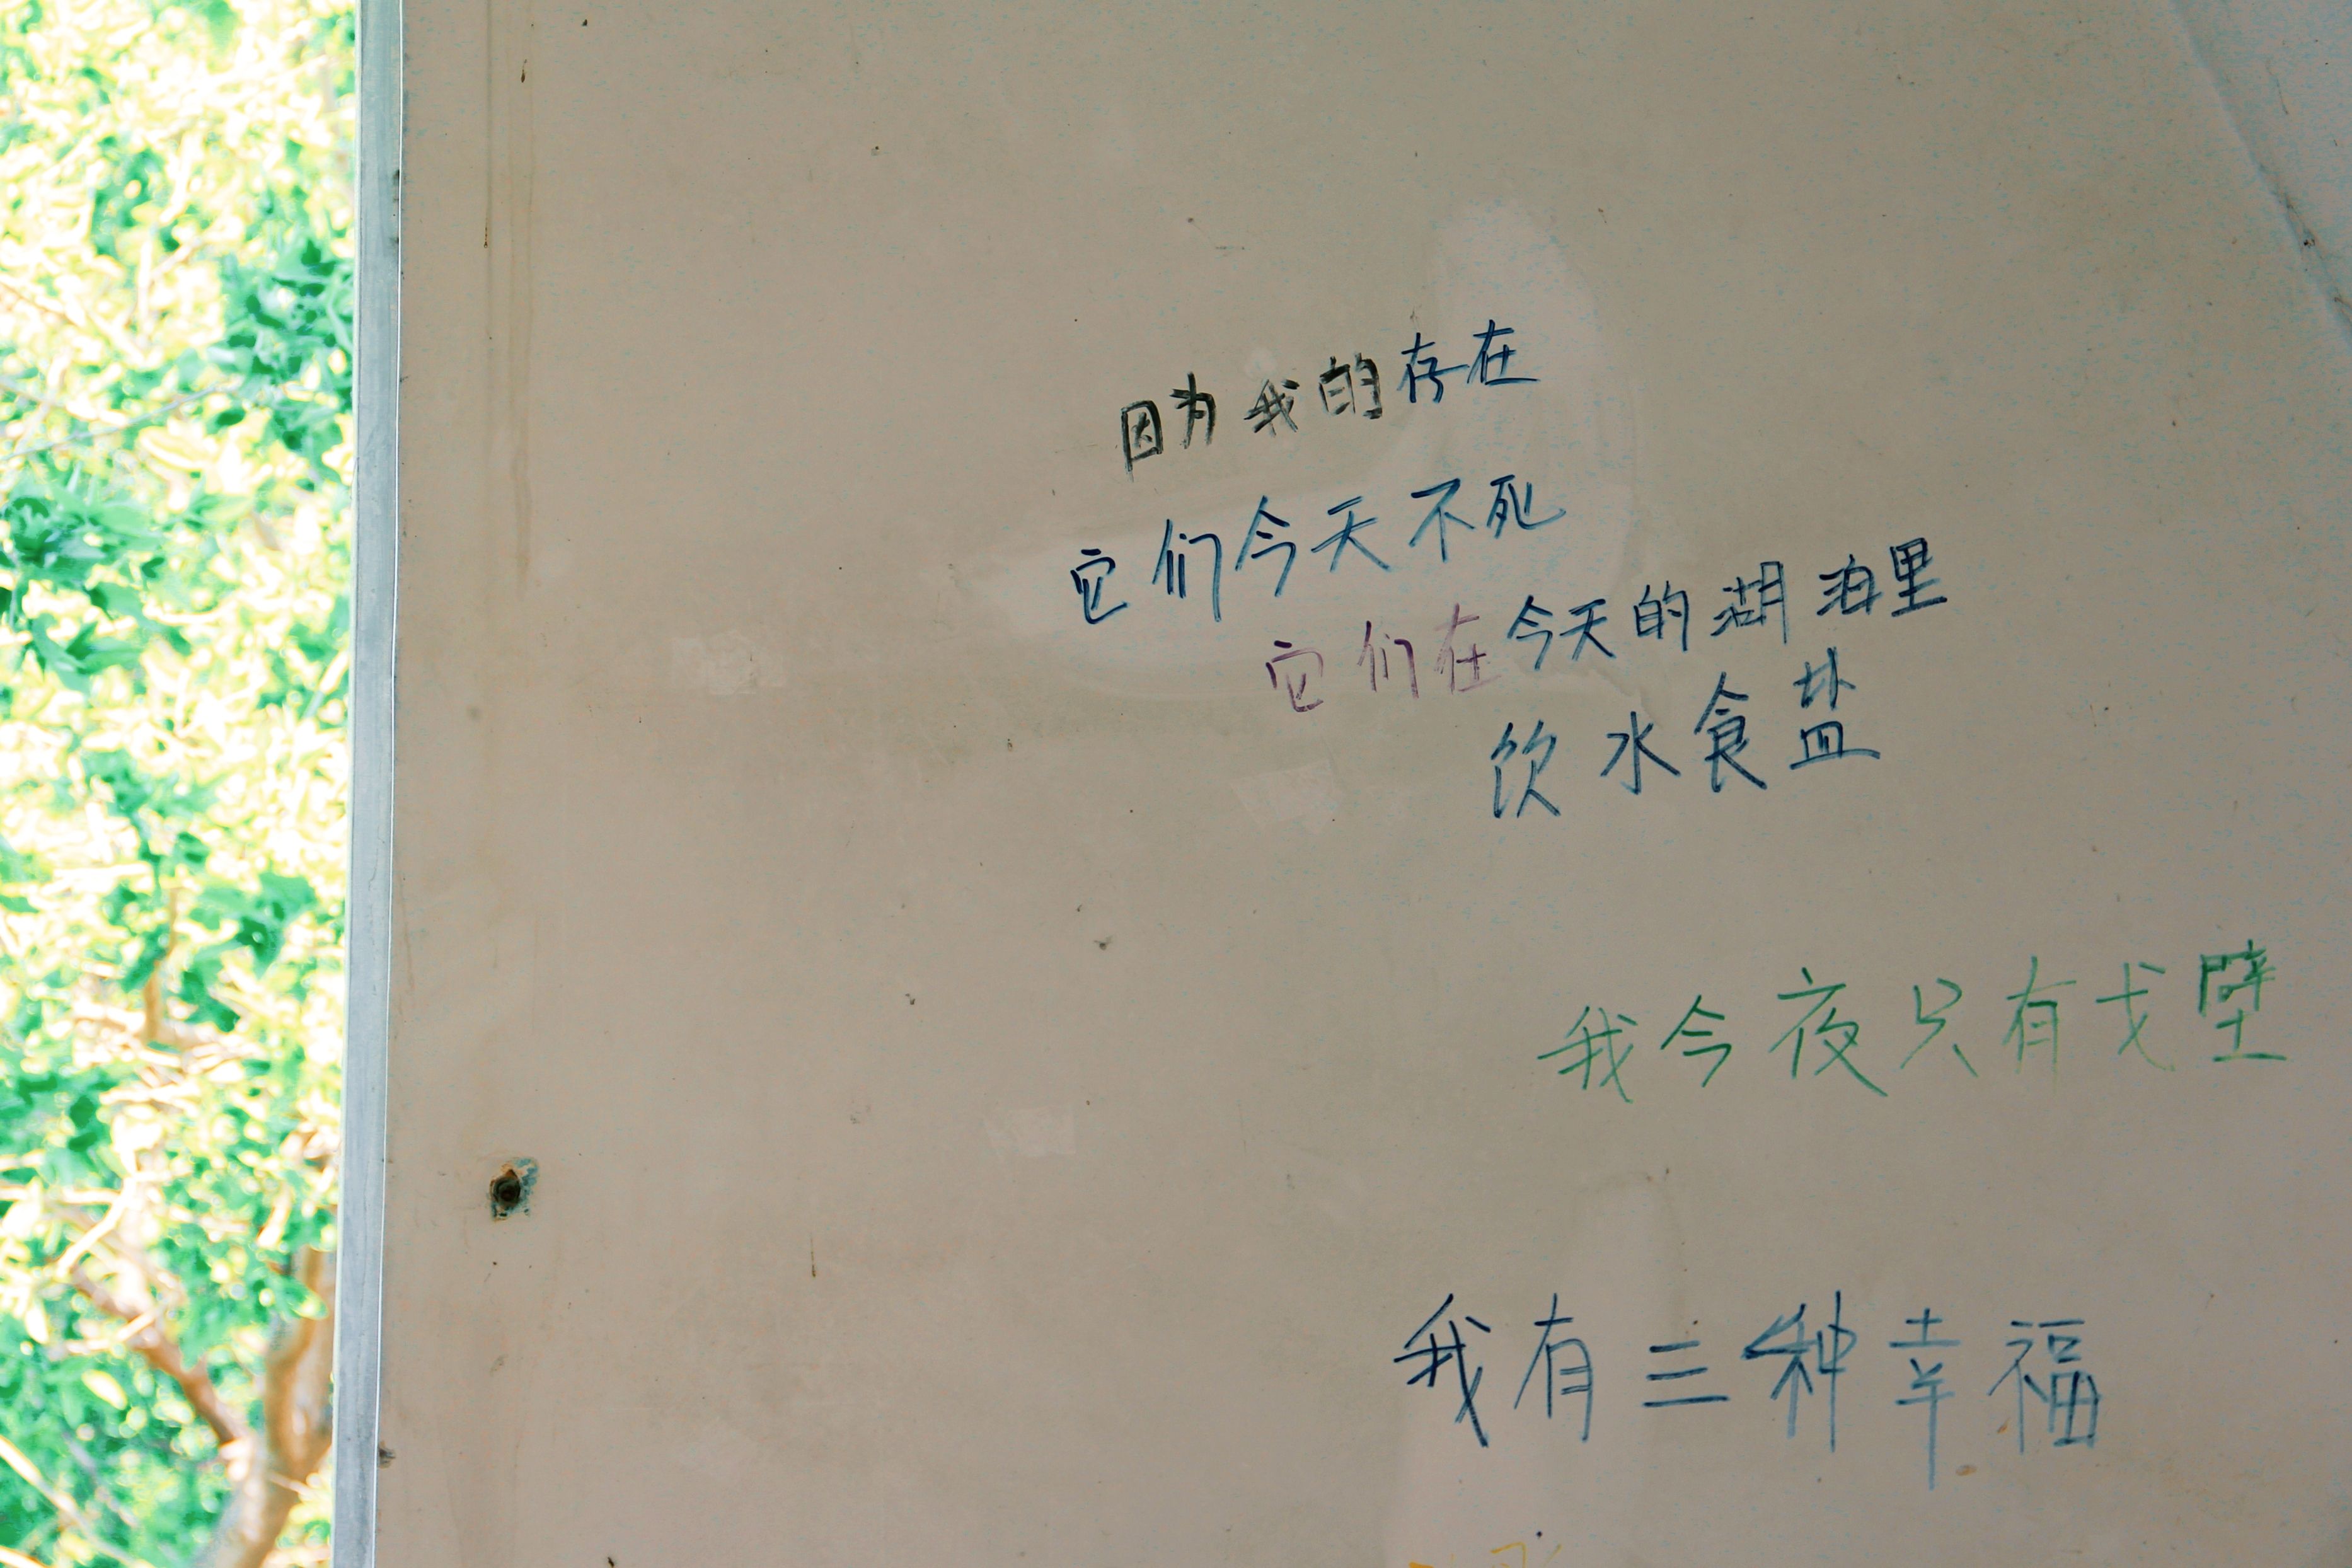 因为我的存在
它们今天不死
它们在今天的湖泊里
饮水食盐
我今夜只有戈壁
我有三种幸福